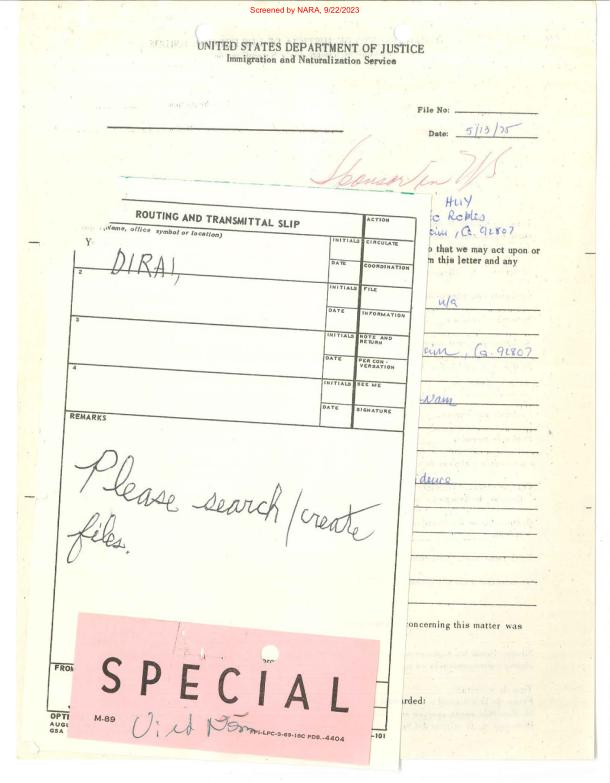 Screened by NARA, 9/22/2023
UNITED STATES DEPARTMENT OF JUSTICE
Immigration and Naturalization Service
File No:
Date: 5/13/75
Sponsor in U/S
HUY
Robles
Ca. 92807
that we may act upon or
m this letter and any
n/a
eim, Ca. 92807
Nam
idence
oncerning this matter was
rded:
ROUTING AND TRANSMITTAL SLIP
ACTION
(Name, office symbol or location)
INITIALS
CIRCULATE
DIRAI,
DATE
COORDINATION
2
INITIALS
FILE
DATE
INFORMATION
3
INITIALS
NOTE AND RETURN
DATE
PER CON-VERSATION
4
INITIALS
SEE ME
DATE
SIGNATURE
REMARKS
Please search/create
files.
FROM
SPECIAL
M-89
Viet Nam
FPI-LPC-3-69-16C PDS.-4404
OPTI
AUGU
GSA
-101